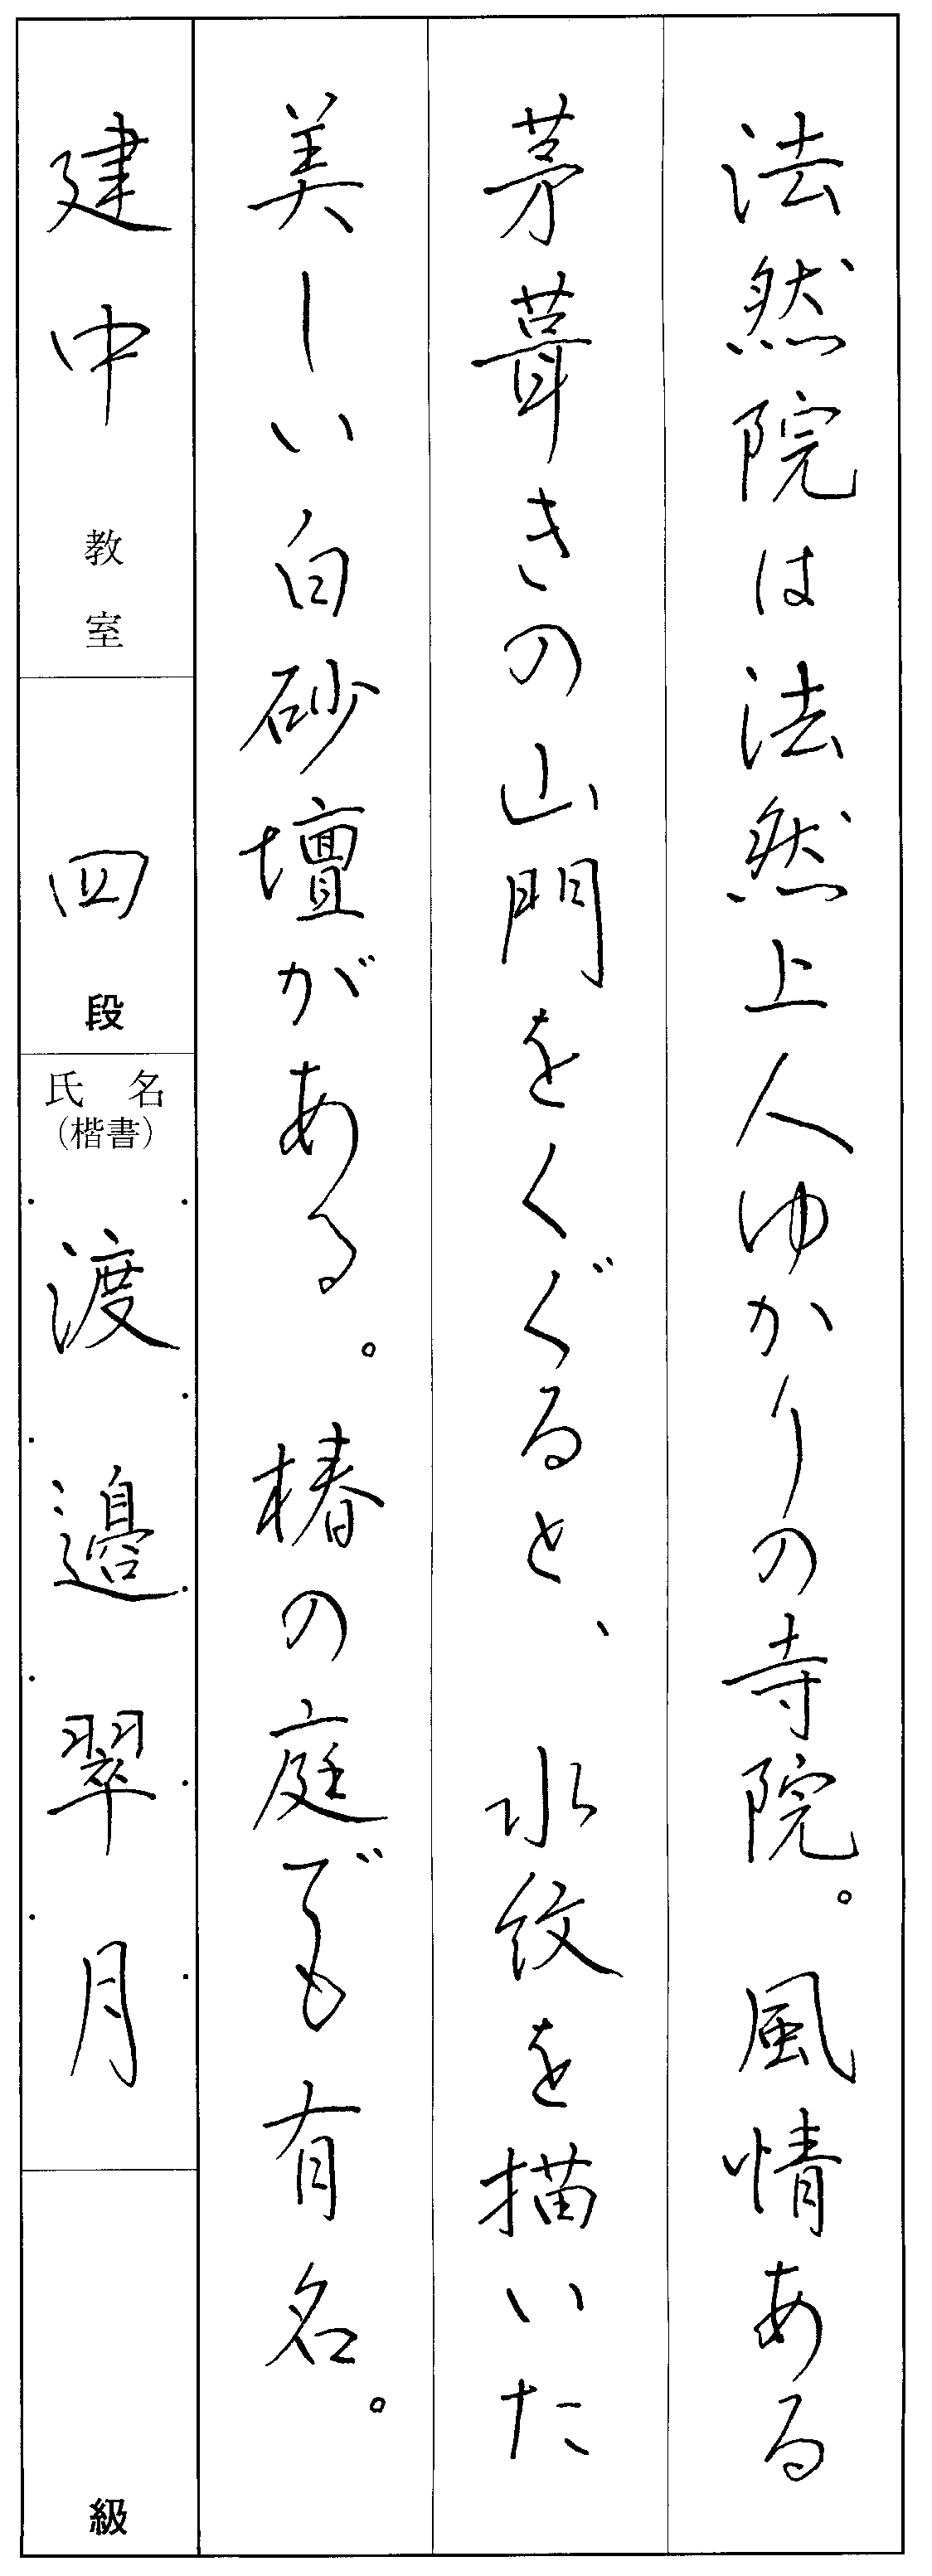 法然院は法然上人ゆかりの寺院。風情ある
茅葺きの山門をくぐると、水紋を描いた
美しい白砂壇がある。椿の庭でも有名。
建中教室
四段
氏名
(楷書)
渡邉翠月
級